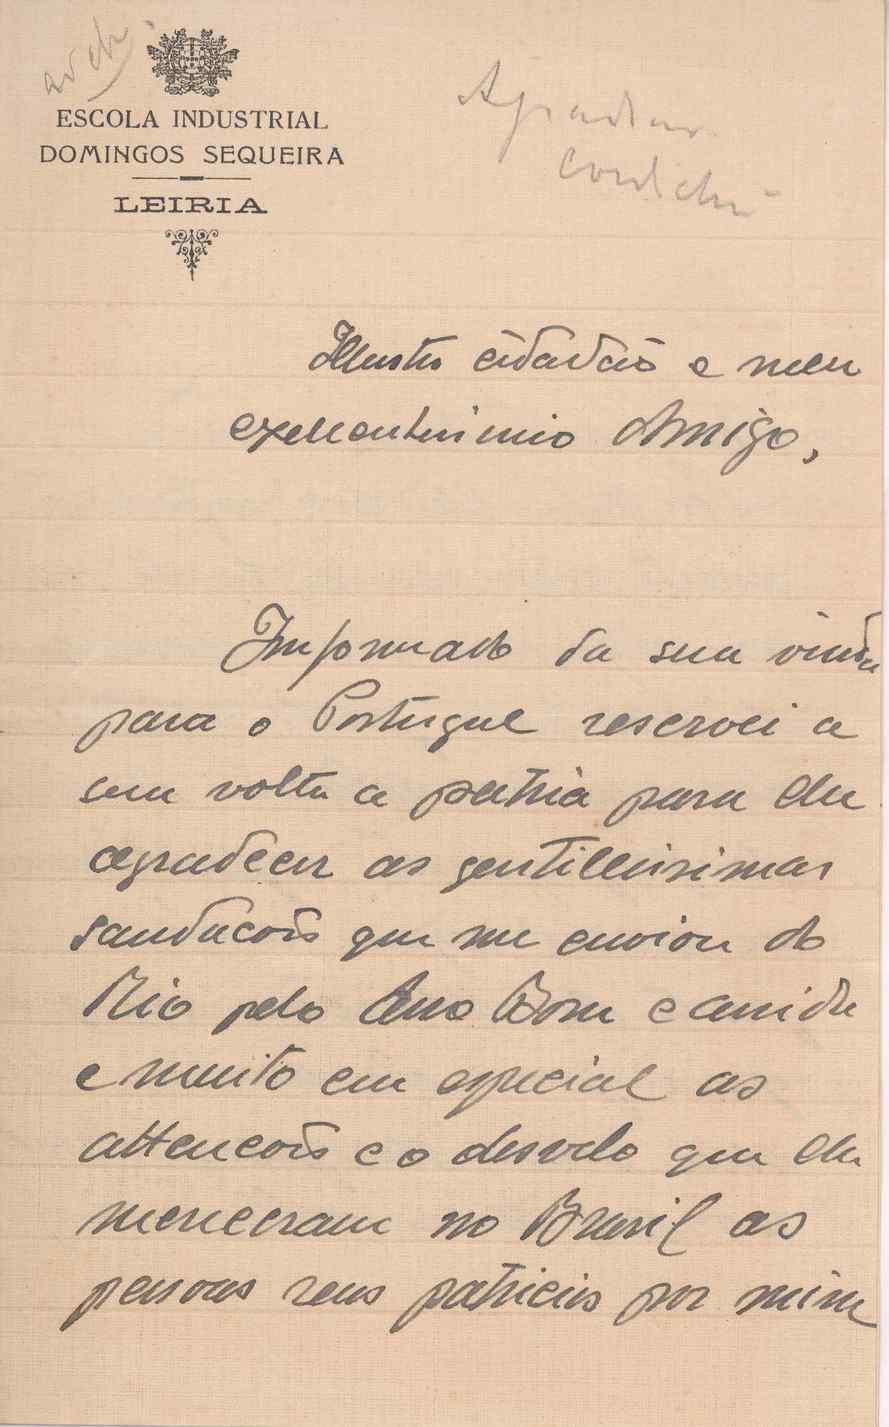 ESCOLA INDUSTRIAL
DOMINGOS SEQUEIRA
LEIRIA
Agradecer
Illustre cidadão e meu
excellentissimo Amigo,
Informado da sua vinda
para o Portugal reservei a
sua volta a patria para lhe
agradecer as gentillissimas
saudacões que me enviou do
Rio pelo Ano Bom e ainda
e muito em especial as
attencões e o desvelo que lhe
mereceram no Brasil as
pessoas seus patricios por mim